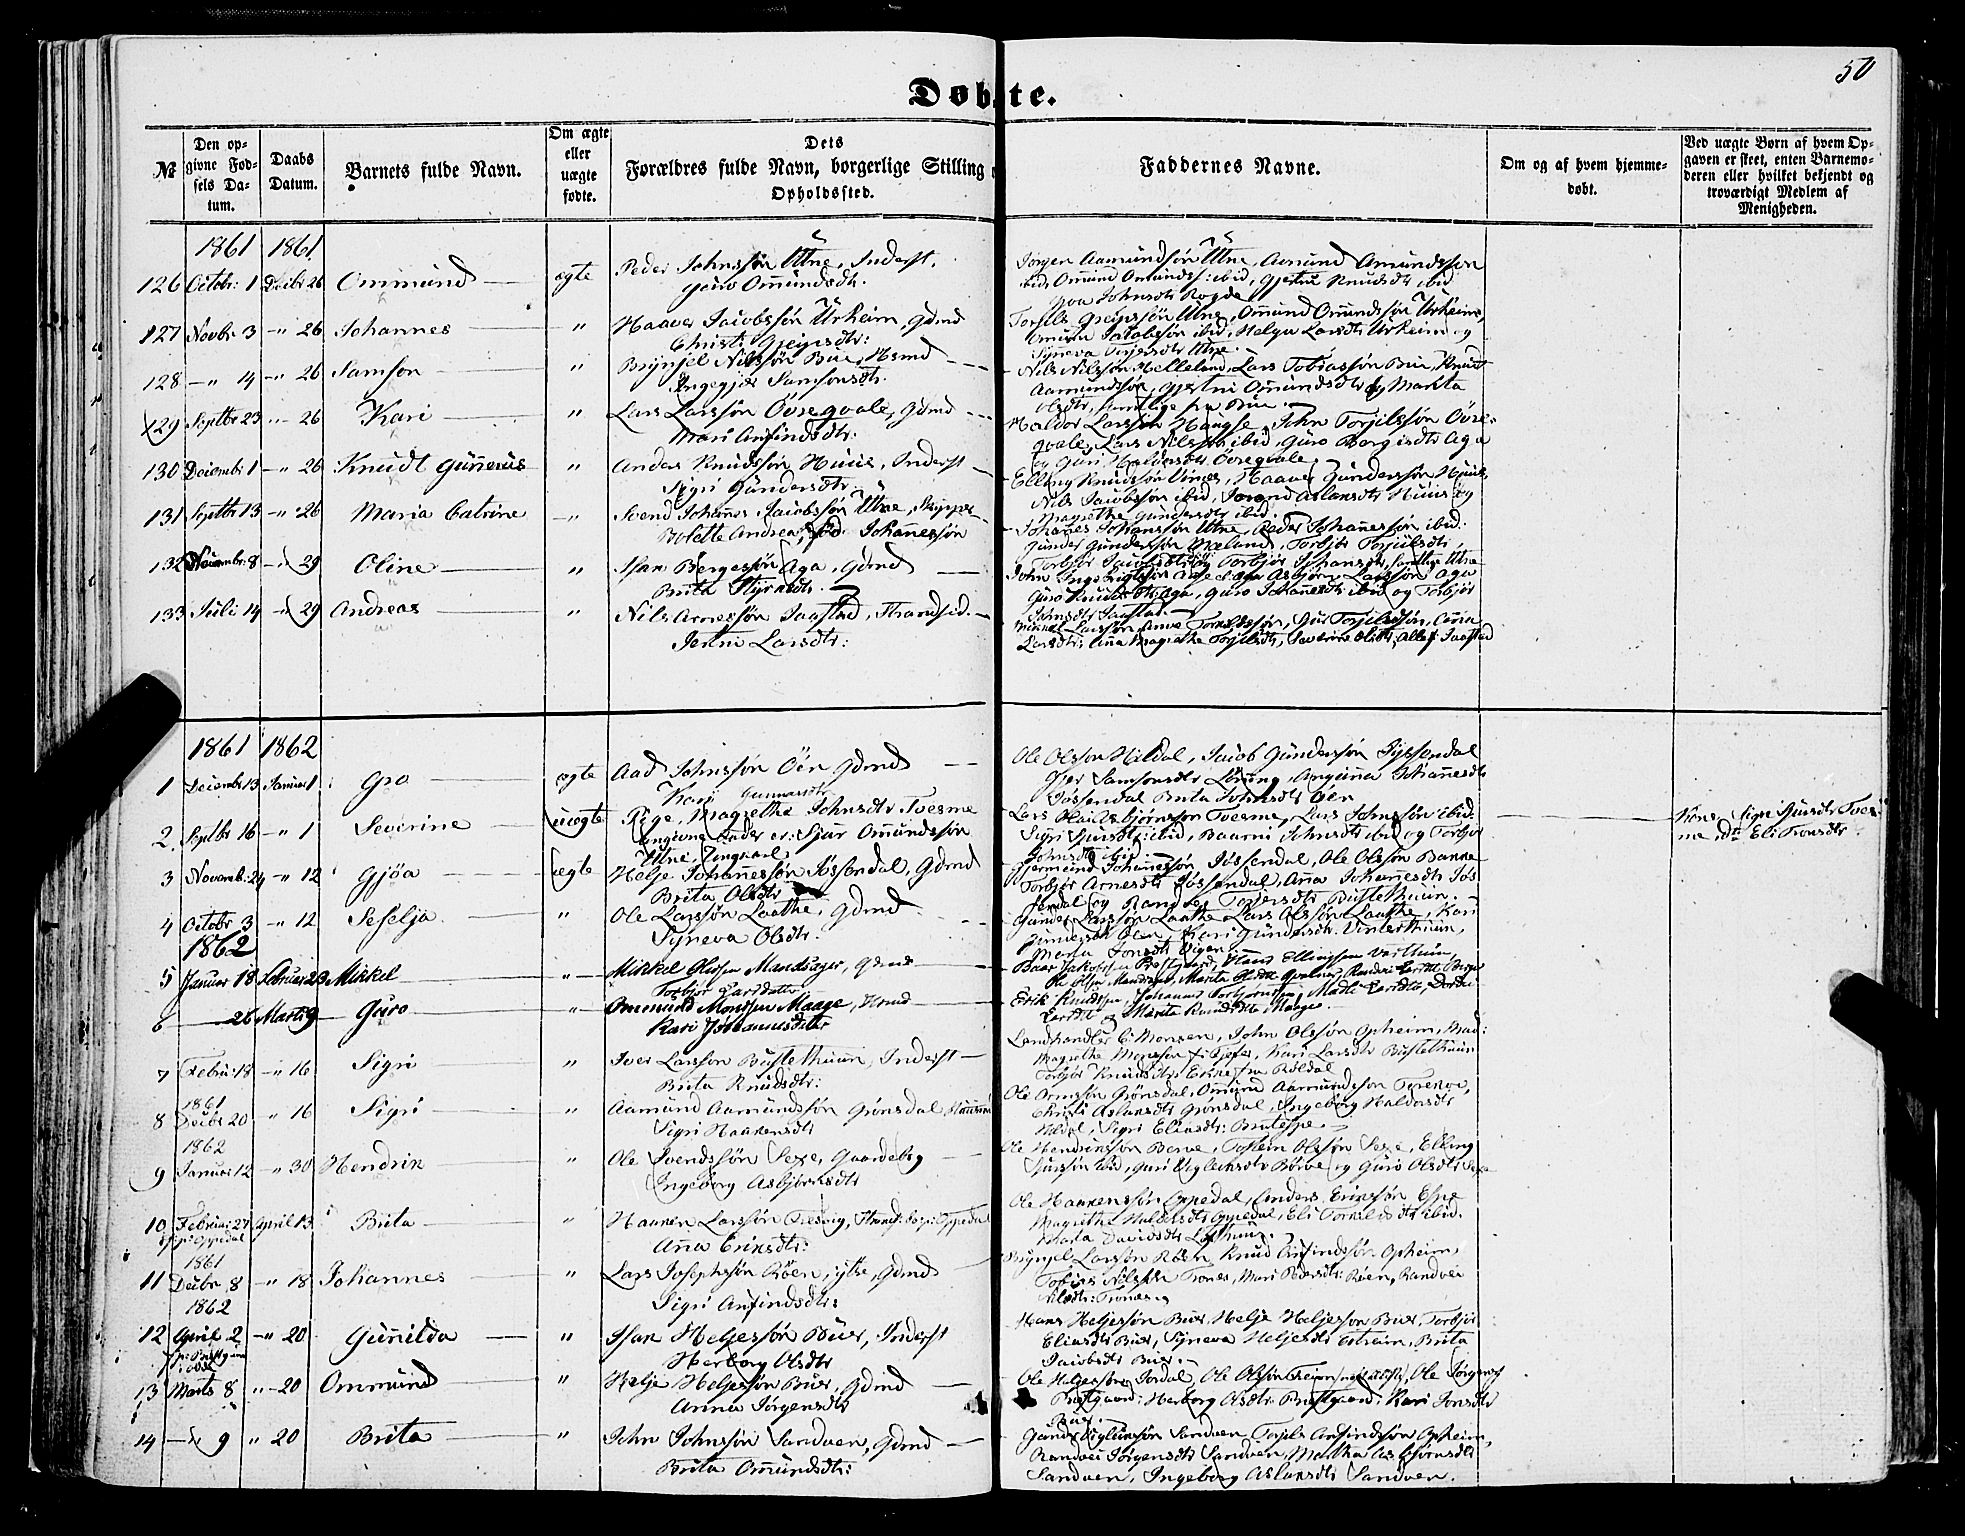 50
Døbte.
№
Den opgivne Fødsels Datum.
Daabs Datum.
Barnets fulde Navn.
Om ægte eller uægte fødte.
Dets Forældres fulde Navn, borgerlige Stilling Opholdssted.
Faddernes Navne.
Om og af hvem hjemmedøbt.
Ved uægte Børn af hvem Opgaven er skeet, enten Barnemoderen eller hvilket bekjendt og troværdigt Medlem af Menigheden.
1861 1861
126 Octobr: 1 Decbr 26 Ommund ægte Peder Johnssøn Utne, Inderst,
Guro Omundsdtr.
Jørgen Aamundsøn Utne, Amund Amundssøn
ibid, Omund Omundss: ibid, Gjertru Knudsdtr ibid
Johnsdtr Rogde
127 Novbr 3 -"- 26 Johannes " Haaver Jacobssøn Urheim, Gdmd
Christi Gjeirsdtr:
Torjils Gjeirssøn Utne, Omund Omundssøn Urheim,
Jacobsøn ibid, Helga Larsdtr Urheim og
Syneva Torjersdtr Utne.
128 -"- 14 -"- 26 Samson " Brynjel Nilssøn Bue, Hsmd
Ingegjer Samsonsdtr.
Nils Nilssøn Helleland, Lars Tobiassøn Bue, Knud
Aamundssøn, Gjertru Omundsdtr og Martha
Olsdtr, samtlige fra Bue
129 Septbr 23 -"- 26 Kari " Lars Larssøn Øvreqvale, Gdmd
Mari Anfindsdtr:
Haldor Larssøn Haugse, John Torjilssøn Øvre-
qvale, Lars Nilssøn ibid, Guro Aga
og Guri Haldorsdtr Øvreqvale
130 Decembr 1 -"- 26 Knudt Gunnerus " Anders Knudssøn Huus, Inderst
Sigri Gundersdtr
Elling Knudssøn Vines, Haaver Gunderssøn Huus,
Nils Jacobssøn ibid, Aslaksdtr Huus og
Magrethe Gundersdtr ibid.
131 Septbr 13 -"- 26 Maria Catrine -"- Svend Johannes Jacobssøn Utne, Skipper
Bolette Andrea, fød Johannesson
Johanes Johanssøn Utne, Peder Johannessøn ibid.
Gunder Gunderssøn Mæland, Torbjør Torjilsdtr,
Torbjør Jacobsdtr og Torbjør Johansdtr, samtlige Utne
132 Novembr: 8 -"- 29 Oline " Isak Børgessøn Aga, Gdmd
Brita Styrksdtr.
John Ingebrigtssøn Aga, Asbjørn Larssøn Aga
Guro Knudsdtr Aga, Guro Johannesdtr ibid og Torbjør
Johnsdtr Jaastad
133 Juli 14 -"- 29 Andreas " Nils Arnessøn Jaastad, Strandsid.
Jertru Larsdtr:
Mikkel Larssøn, Arne Torkildssøn, Torjilssøn,
Larsdtr, Ana Magrethe Torjilsdtr, Severine Olsdtr, Alle f. Jaastad
1861 1862
1 Decembr 13 Januar 1 Gro ægte Aad Johnssøn Øen Gdmd
Kari Gunnarsdtr
Ole Olsson Hildal, Jacob Gunderssøn Tyssendal
Samsonsdtr Løning, Johannesdtr
Jøssendal Brita Johnsdtr Øen
2. Septbr 16 -"- 1 Severine uægte Pige, Magrethe Johnsdtr Tvesme
Angivne Fader er: Sjur Omundssøn
Utne, Ungkarl
Lars Asbjørnson Tvesme, Lars Johnssøn ibid.
Sigri Sjursdtr: ibid, Johnsdtr ibid og Torbjør
Johnsdtr ibid
Kone, Signe Sjursdtr Tves-
me, do. Eli Tronsdtr.
3 Novembr: 24 -"- 12 Gjøa ægte Helje Johannessøn Jøssendal, Gdmd
Brita Olsdtr
Gjermund Johannessøn Jøssendal, Ole Olssøn Bakke
Torbjør Arnesdtr Jøssendal, Anna Johannesdtr Jøs
sendal og Torjersdtr Bustethuun.
4 Octobr 3 -"- 12 Seselja " Ole Larssøn Laathe, Gdmd.
Syneva Olsdtr.
Gunder Larssøn Laathe Lars Olssøn Laathe, Kari
Gundersdtr Øien, Kari Gundersdtr. Vinterthuun,
Marta Jonsdtr Digen
1862
5 Januar 18 Februar 23 Mikkel " Mikkel Olsen Mandsager, Gdmd
Torbjør Larsdatter
Prestgaard, Hans Ellingsen Vasthun,
Ole Olsen Mandsager, Marita Olsdtr
6 - 26 Marts 9 Guro " Ommund Monsen Maage, Hsmd
Kari Johannesdatter
Erik Knudsen, Johannes Torbjørnsen, Madli Larsdtr,
Larsdtr og Marita Knudsdtr Maage
7 Februa: 18 -"- 16 Sigri " Iver Larsson Bustethuun, Inderst
Brita Knudsdtr:
Landhandler E: Monsen, John Olssøn Opheim, Mad:
Magrethe Monsson f. Kjefer, Kari Larsdtr Bustethuun
Torbjør Knudsdtr fra Røldal
1861
8 Decbr 20 -"- 16 Sigri " Aamund Aamundssøn Grønsdal Huusmd
Sigri Haakensdtr
Ole Ormssøn Grønsdal, Omund Aamundssøn
Christi Aslaksdtr Grønsdal, Ingeborg Haldorsdtr
Hildal, Sigri Eliasdtr: Brutespe
1862
9 Januar 12 -"- 30 Hendrik " Ole Svendssøn Sexe, Gaardebrg
Ingeborg Asbjørnsdtr
Ole Hendrikssøn Børve, Tosten Olssøn Sexe, Elling
Sjurssøn ibid, Guri Viglecksdtr Børve og Guro Olsdtr Sexe
10 Februar: 27 April 13 Brita " Haaken Larssøn Tresvig, Strandsbo p: Oppedal
Anna Eriksdtr:
Ole Haakenssøn Oppedal, Anders Erikssøn Espe
Magrethe Haldorsdtr Oppedal, Eli Torkildsdtr ibid.
Marta Davidsdtr Lothun.
f: p: Oppedal
1861
11 Decbr 8 -"- 18 Johannes " Lars Josephssøn Røen, ytre, Gdmd
Sigri Anfindsdtr:
Brynjel Larssøn Røen, Knud Anfindssøn Opheim,
Tobias Nilssøn Trones, Mari Pedersdtr: Røen, Randvei
Nilsdtr: Trones
1862
12 April 2 -"- 20 Gunilda " Isak Heljessøn Buer, Inderst
Herborg Olsdtr
Hans Heljessøn Buer, Helje Heljessøn Buer, Torbjør
Eliasdtr Buer, Syneva Heljesdtr Eitrheim, Brita
Jacobsdtr Buer.
f: p: Prestgaard i Odde
13 Marts 8 -"- 20 Ommund " Helje Heljessøn Buer, Gdmd
Anna Jørgensdtr
Ole Heljessøn Jordal, Ole Olssøn Freim, Ole Jørgens
Prestgaard: Herborg Olsdtr Prestgaard: Kari Jonsdtr
Buer.
14 -"- 9 " 20 Brita " John Johnssøn Sandven, Gdmd
Brita Omundsdtr:
Gunder Viglikssøn Sandven, Torjels Anfindssøn Opheim,
Randvei Jørgensdtr Sandven, Martha Asbjørnsdtr
Sandven, Ingeborg Aslaksdtr Sandven.